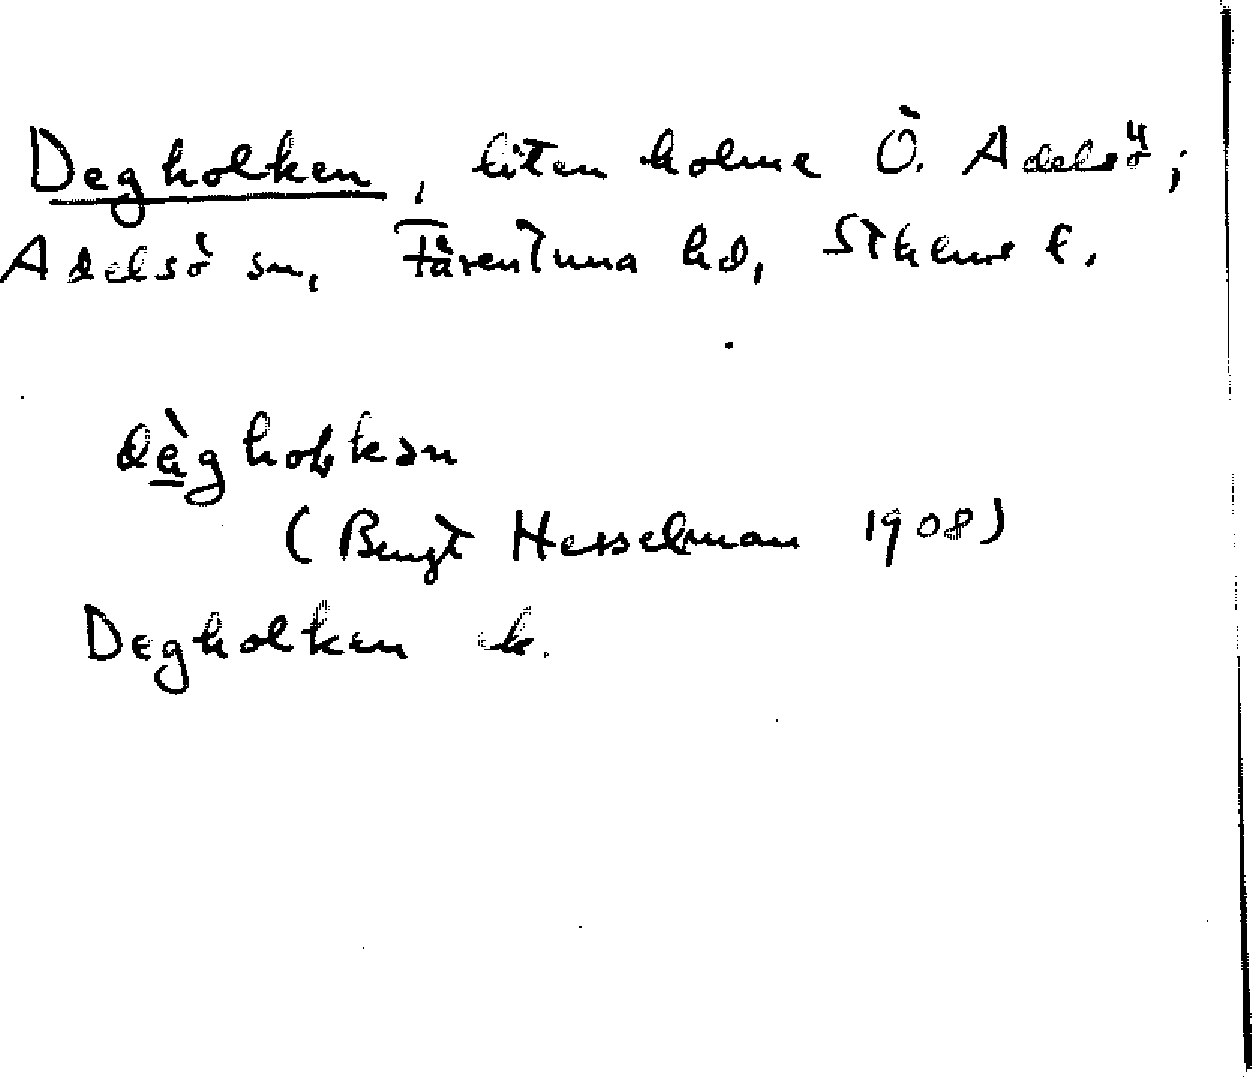 Degholken, liten holme Ö. Adelsö;
Adelsö sn, Färentuna hd, Sthlms l.
dèghoɫkən
(Bengt Hesselman 1908)
Degholken ek.